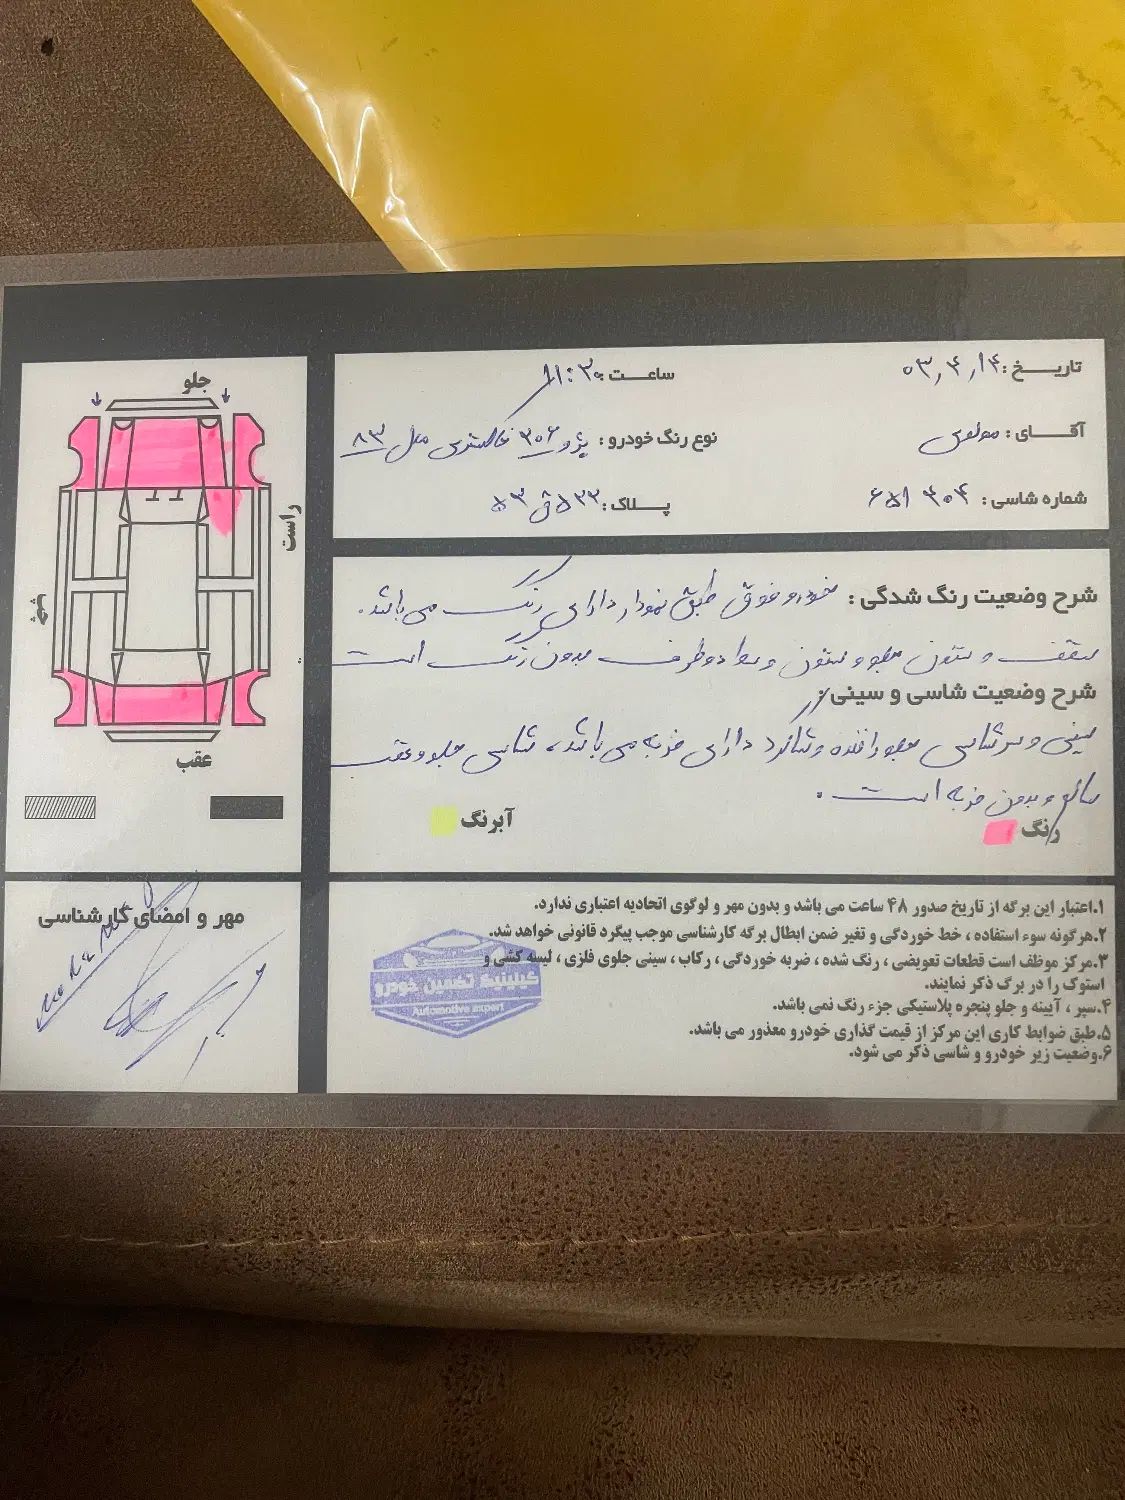 تاریخ : ۰۳٫۴٫۱۴
ساعت : ۱۱:۳۰
آقای : مولوی
نوع رنگ خودرو : پژو ۲۰۶ خاکستری مدل ۸۳
شماره شاسی :
پلاک : ۵۳
شرح وضعیت رنگ شدگی : خودرو فوق طبق نمودار دارای رنگ می باشد.
سقف و ستون جلو و ستون وسط دو طرف بدون رنگ است
شرح وضعیت شاسی و سینی :
سینی و سر شاسی جلو راننده و شاگرد دارای ضربه می باشد، شاسی جلو و عقب
سالم و بدون ضربه است.
رنگ
آبرنگ
جلو
راست
چپ
عقب
مهر و امضای کارشناسی
۱.اعتبار این برگه از تاریخ صدور ۴۸ ساعت می باشد و بدون مهر و لوگوی اتحادیه اعتباری ندارد.
۲.هرگونه سوء استفاده ، خط خوردگی و تغیر ضمن ابطال برگه کارشناسی موجب پیگرد قانونی خواهد شد.
۳.مرکز موظف است قطعات تعویضی ، رنگ شده ، ضربه خوردگی ، رکاب ، سینی جلوی فلزی ، لیسه کشی و
استوک را در برگ ذکر نمایند.
۴.سپر ، آیینه و جلو پنجره پلاستیکی جزء رنگ نمی باشد.
۵.طبق ضوابط کاری این مرکز از قیمت گذاری خودرو معذور می باشد.
۶.وضعیت زیر خودرو و شاسی ذکر می شود.
کیلینیک تضمین خودرو
Automotive expert